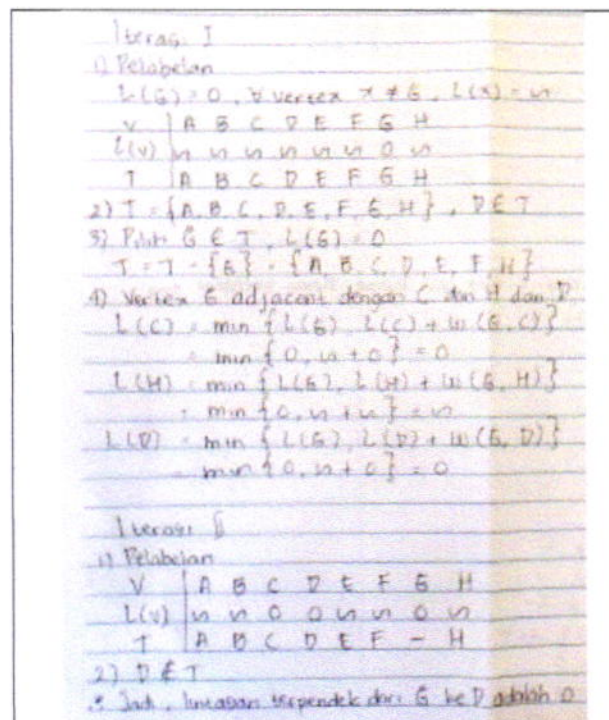 Iterasi I
1) Pelabelan
L(G) = 0, ∀ vertex x ≠ G, L(x) = ∽
V | A B C D E F G H
L(v) | ∽ ∽ ∽ ∽ ∽ ∽ 0 ∽
T | A B C D E F G H
2) T = {A, B, C, D, E, F, G, H}, D ∈ T
3) Pilih G ∈ T, L(G) = 0
T = T - {G} = {A, B, C, D, E, F, H}
4) Vertex G adjacent dengan C dan H dan D
L(C) = min {L(G), L(C) + w(G, C)}
= min {0, ∽ + 0} = 0
L(H) = min {L(G), L(H) + w(G, H)}
= min {0, ∽ + ∽} = ∽
L(D) = min {L(G), L(D) + w(G, D)}
= min {0, ∽ + 0} = 0
Iterasi II
1) Pelabelan
V | A B C D E F G H
L(v) | ∽ ∽ 0 0 ∽ ∽ 0 ∽
T | A B C D E F - H
2) D ∉ T
∴ Jadi, lintasan terpendek dari G ke D adalah 0